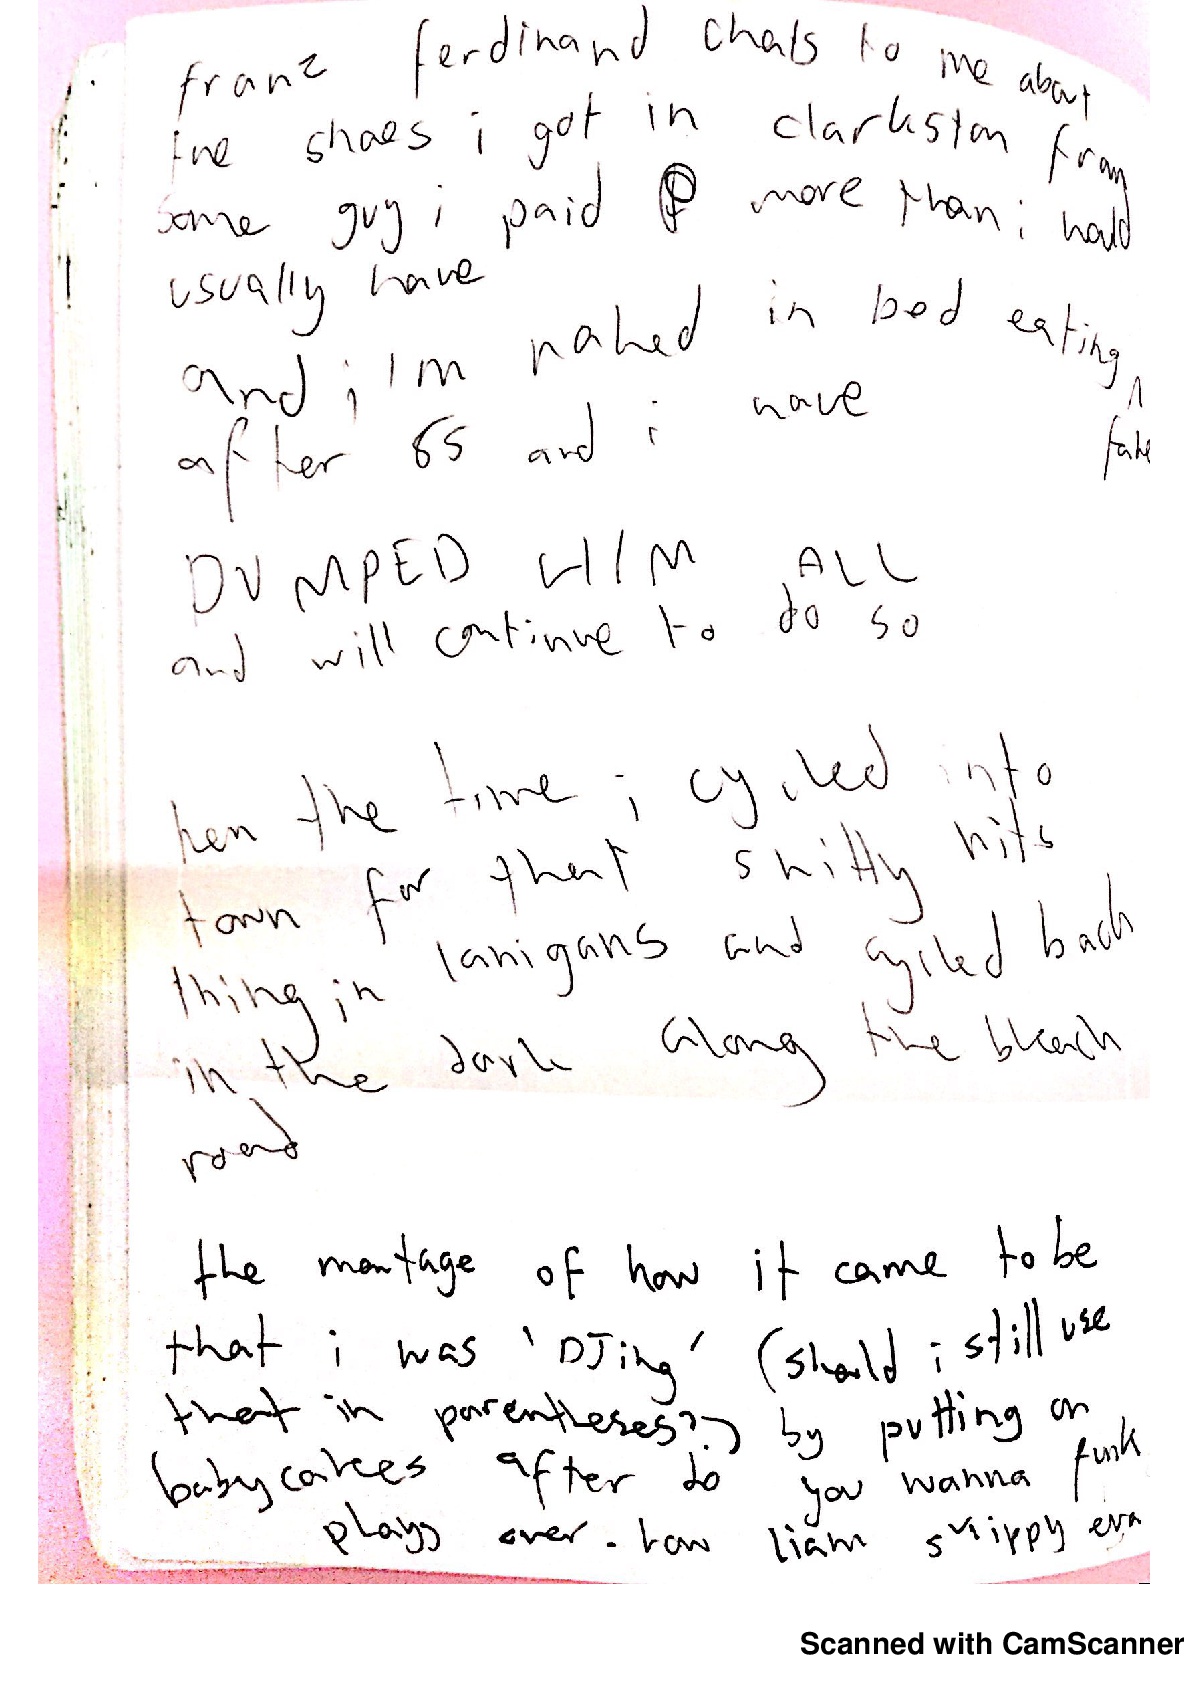 franz ferdinand chats to me about
the shoes i got in clarkston from
some guy i paid more than i would
usually have
and i I'm naked in bed eating ^
fake
after 8s and i have
DUMPED HIM ALL
and will continue to do so
then the time i cycled into
town for that shitty hits
thing in lanigans and cycled back
in the dark along the bleach
road
the montage of how it came to be
that i was 'DJing' (should i still use
that in parentheses??) by putting on
babycakes after do you wanna funk
plays over. how liam skippy era
Scanned with CamScanner